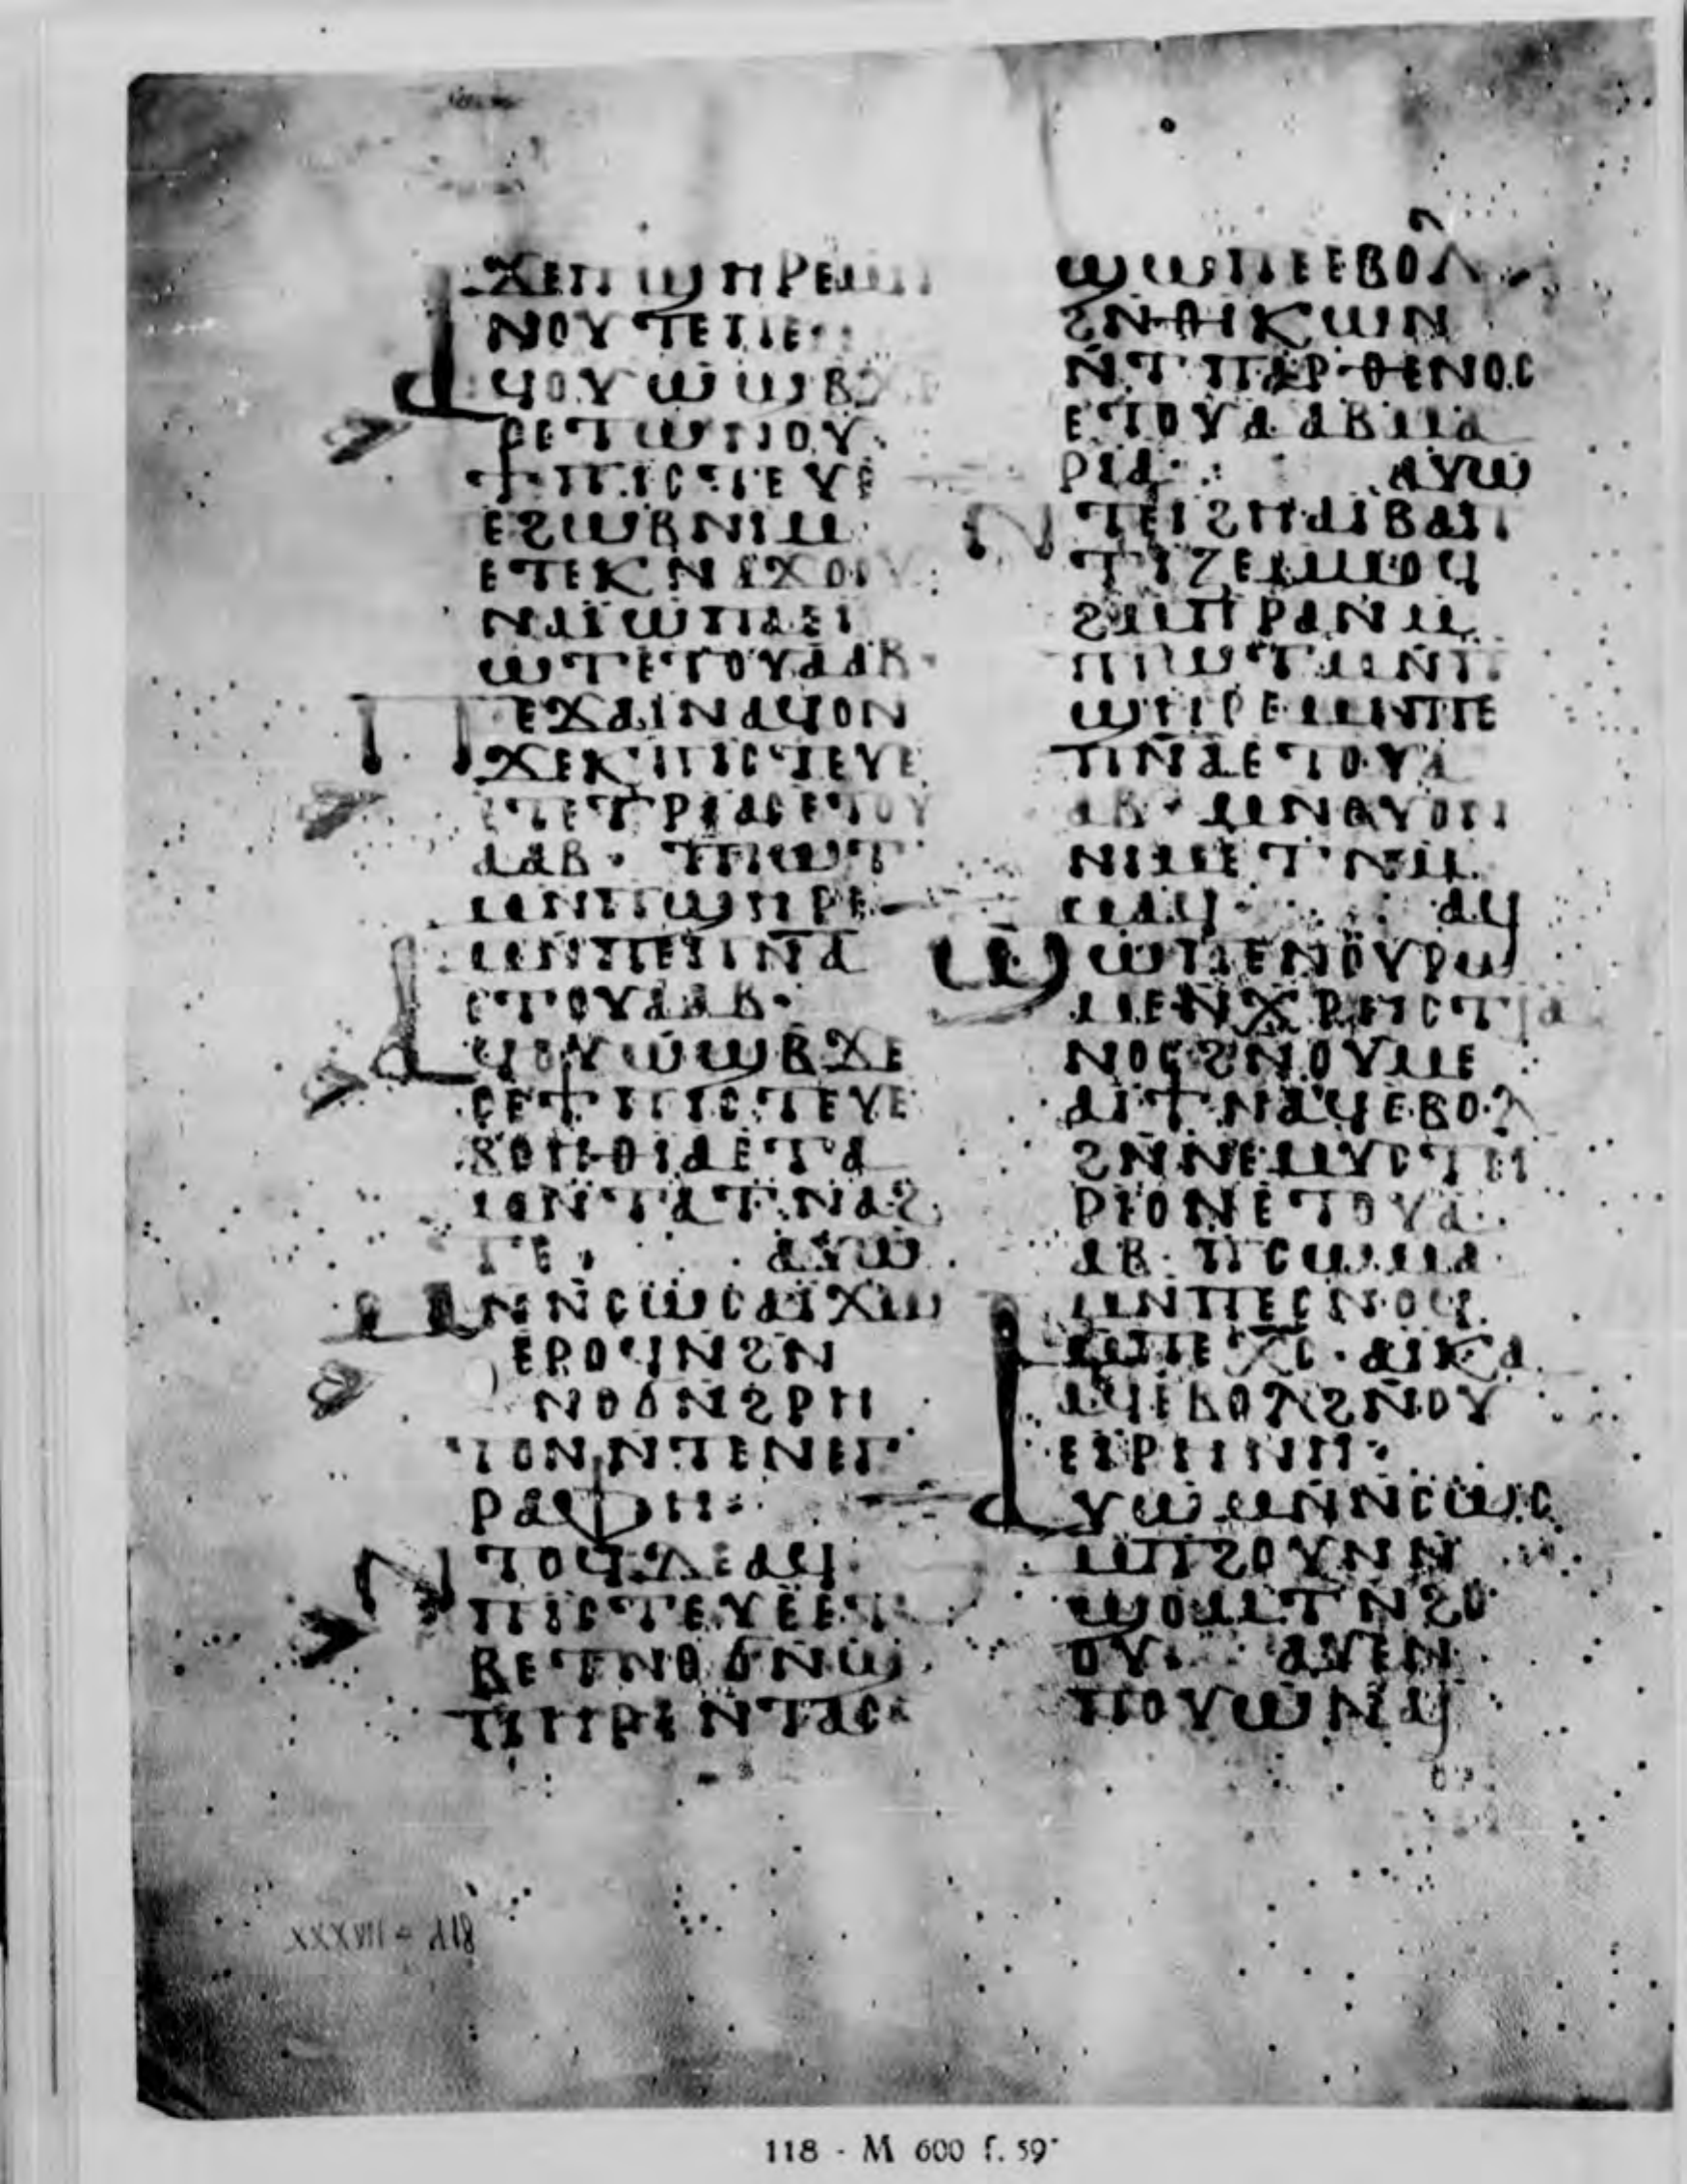 ϫⲉⲡϣⲏⲣⲉⲙⲡ
ⲛⲟⲩⲧⲉⲡⲉ
ⲁϥⲟⲩⲱϣⲃϫⲉ
ⲥⲉⲧⲱⲛⲟⲩ
ϯⲡⲓⲥⲧⲉⲩⲉ
ⲉϩⲱⲃⲛⲓⲙ
ⲉⲧⲉⲕⲛⲁϫⲟⲟⲩ
ⲛⲁⲓ̈ⲱⲡⲁⲉⲓ
ⲱⲧⲉⲧⲟⲩⲁⲁⲃ·
ⲡⲉϫⲁⲓⲛⲁϥⲟⲛ
ϫⲉⲕⲡⲓⲥⲧⲉⲩⲉ
ⲉⲧⲉⲧⲣⲓⲁⲥⲉⲧⲟⲩ
ⲁⲁⲃ· ⲡⲓⲱⲧ
ⲙⲛⲡϣⲏⲣⲉ
ⲙⲛⲡⲉⲡⲛⲁ
ⲉⲧⲟⲩⲁⲁⲃ·
ⲁϥⲟⲩⲱϣⲃϫⲉ
ⲥⲉϯⲡⲓⲥⲧⲉⲩⲉ
ⲃⲟⲏⲑⲓⲁⲉⲧⲁ
ⲙⲛⲧⲁⲧⲛⲁϩ
ⲧⲉ· ⲁⲩⲱ
ⲙⲛⲛⲥⲱⲥⲁⲓ̈ϫⲱ
ⲉⲣⲟϥⲛϩⲛ
ⲛⲟϭⲛϩⲣⲏ
ⲧⲟⲛⲛⲧⲉⲛⲉⲅ
ⲣⲁⲫⲏ:
ⲛⲧⲟϥⲇⲉⲁϥ
ⲡⲓⲥⲧⲉⲩⲉⲉⲧ
ⲃⲉⲧⲛⲟϭⲛϣ
ⲡⲏⲣⲉⲛⲧⲁⲥ
ϣⲱⲡⲉⲉⲃⲟⲗ
ϩⲛⲑⲓⲕⲱⲛ
ⲛⲧⲡⲁⲣⲑⲉⲛⲟⲥ
ⲉⲧⲟⲩⲁⲁⲃⲙⲁ
ⲣⲓⲁ: ⲁⲩⲱ
ⲛⲧⲉⲓϩⲏⲁⲓⲃⲁⲡ
ⲧⲓⲍⲉⲙⲙⲟϥ
ϩⲙⲡⲣⲁⲛⲙ
ⲡⲓⲱⲧⲙⲛⲡ
ϣⲏⲣⲉⲙⲛⲡⲉ
ⲡⲛⲁⲉⲧⲟⲩⲁ
ⲁⲃ· ⲙⲛⲟⲩⲟⲛ
ⲛⲓⲙⲉⲧⲛⲙ
ⲙⲁϥ· ⲁϥ
ϣⲱⲡⲉⲛⲟⲩⲣⲱ
ⲙⲉⲛⲭⲣⲏⲥⲧⲓⲁ
ⲛⲟⲥϩⲛⲟⲩⲙⲉ
ⲁⲓϯⲛⲁϥⲉⲃⲟⲗ
ϩⲛⲛⲉⲙⲩⲥⲧⲏ
ⲣⲓⲟⲛⲉⲧⲟⲩⲁ
ⲁⲃ· ⲡⲥⲱⲙⲁ
ⲙⲛⲡⲉⲥⲛⲟϥ
ⲙⲡⲉⲭⲥ· ⲁⲓⲕⲁ
ⲁϥⲉⲃⲟⲗϩⲛⲟⲩ
ⲉⲓⲣⲏⲛⲏ·
ⲁⲩⲱⲙⲛⲛⲥⲱⲥ
ⲙⲡϩⲟⲩⲛⲛ
ϣⲟⲙⲧⲛϩⲟ
ⲟⲩ· ⲁⲩⲉⲛ
ⲡⲟⲩⲱⲛⲁϥ
XXXVII = M8
118 - M 600 f. 59ᵛ